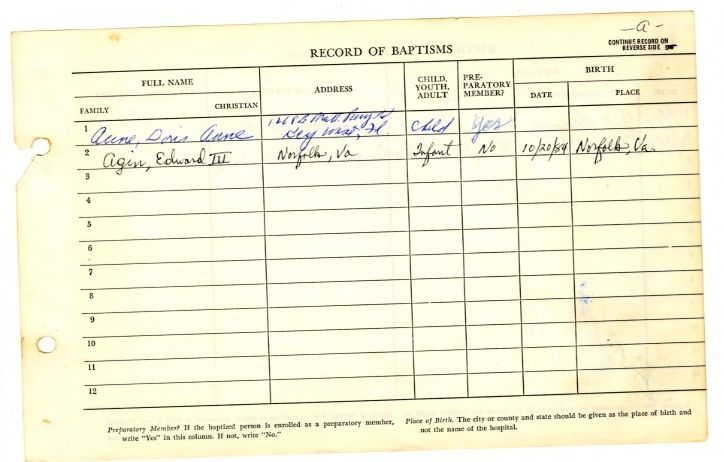 -a-
CONTINUE RECORD ON
REVERSE SIDE
RECORD OF BAPTISMS
FULL NAME
FAMILY CHRISTIAN
ADDRESS
CHILD,
YOUTH,
ADULT
PRE-
PARATORY
MEMBER?
BIRTH
DATE PLACE
1 Doris Anne Child Yes
2 Agin, Edward III Norfolk, Va Infant No 10/20/84 Norfolk, Va.
3
4
5
6
7
8
9
10
11
12
Preparatory Member? If the baptized person is enrolled as a preparatory member,
write "Yes" in this column. If not, write "No."
Place of Birth. The city or county and state should be given as the place of birth and
not the name of the hospital.